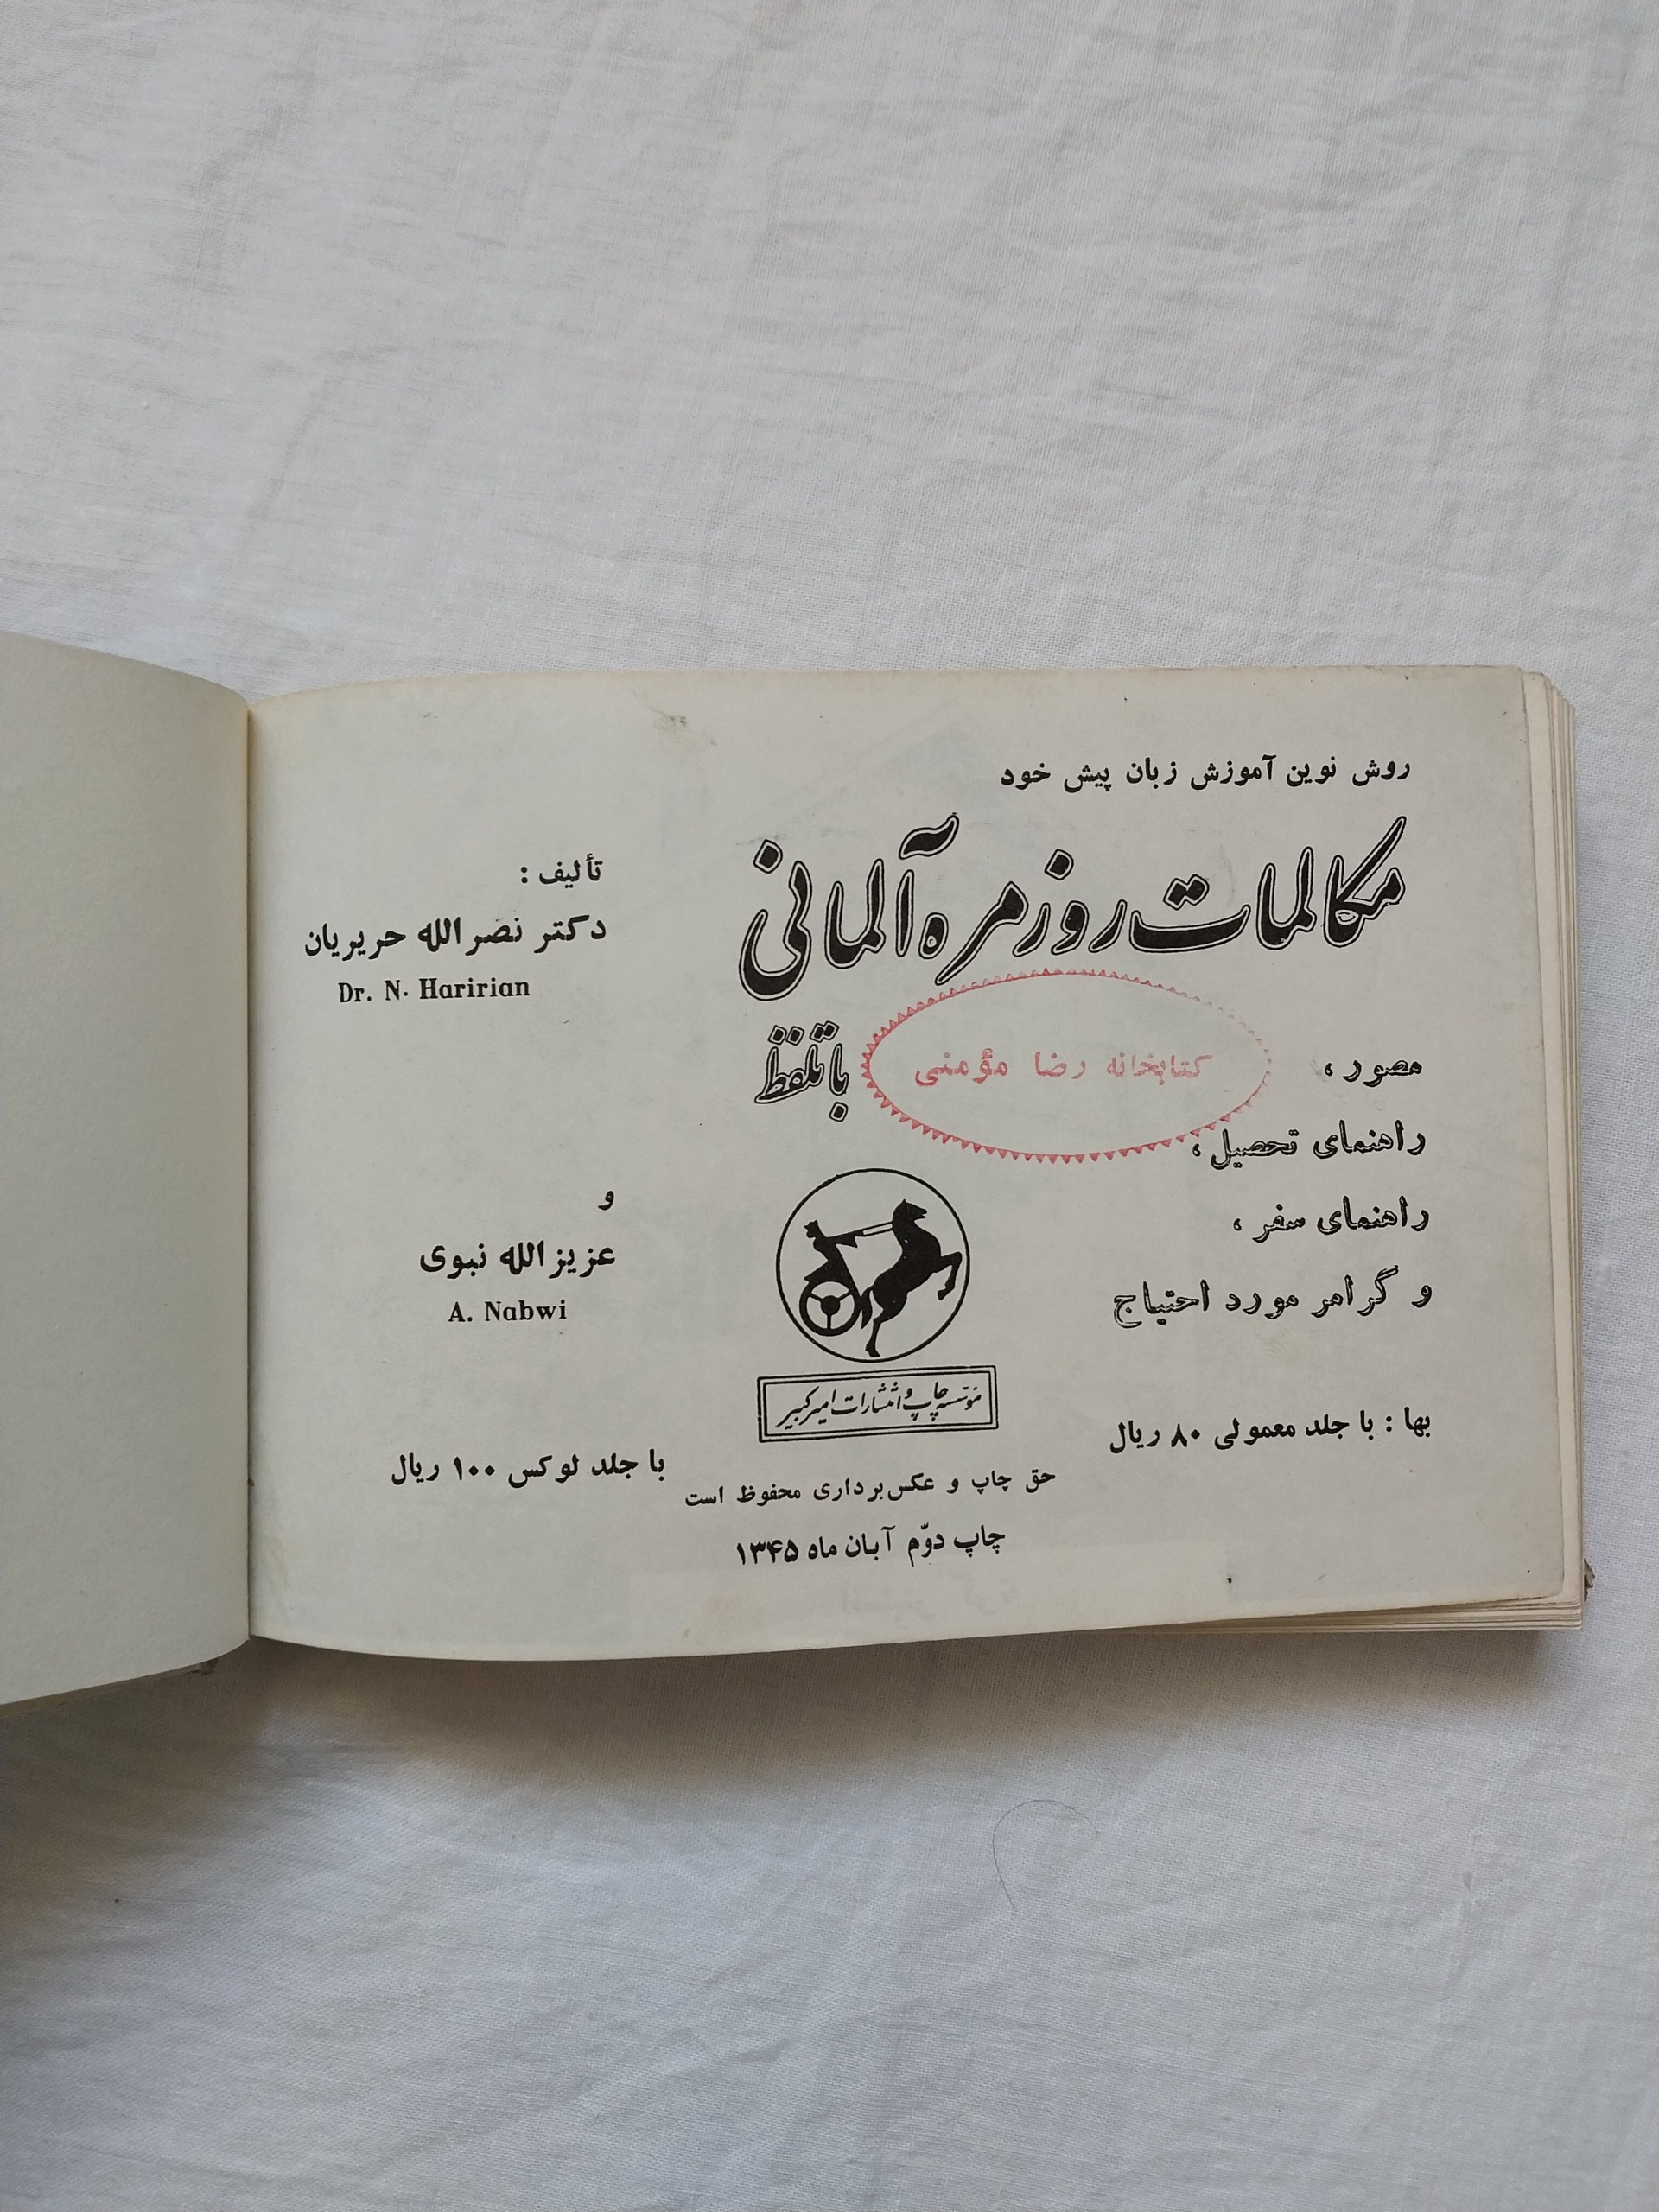 روش نوین آموزش زبان پیش خود
مکالمات روزمره آلمانی
با تلفظ
کتابخانه رضا مؤمنی
مصور،
راهنمای تحصیل،
راهنمای سفر،
و گرامر مورد احتیاج
تألیف:
دکتر نصرالله حریریان
Dr. N. Haririan
و
عزیزالله نبوی
A. Nabwi
مؤسسه چاپ و انتشارات امیرکبیر
بها: با جلد معمولی ۸۰ ریال
با جلد لوکس ۱۰۰ ریال
حق چاپ و عکس‌برداری محفوظ است
چاپ دوّم آبان ماه ۱۳۴۵